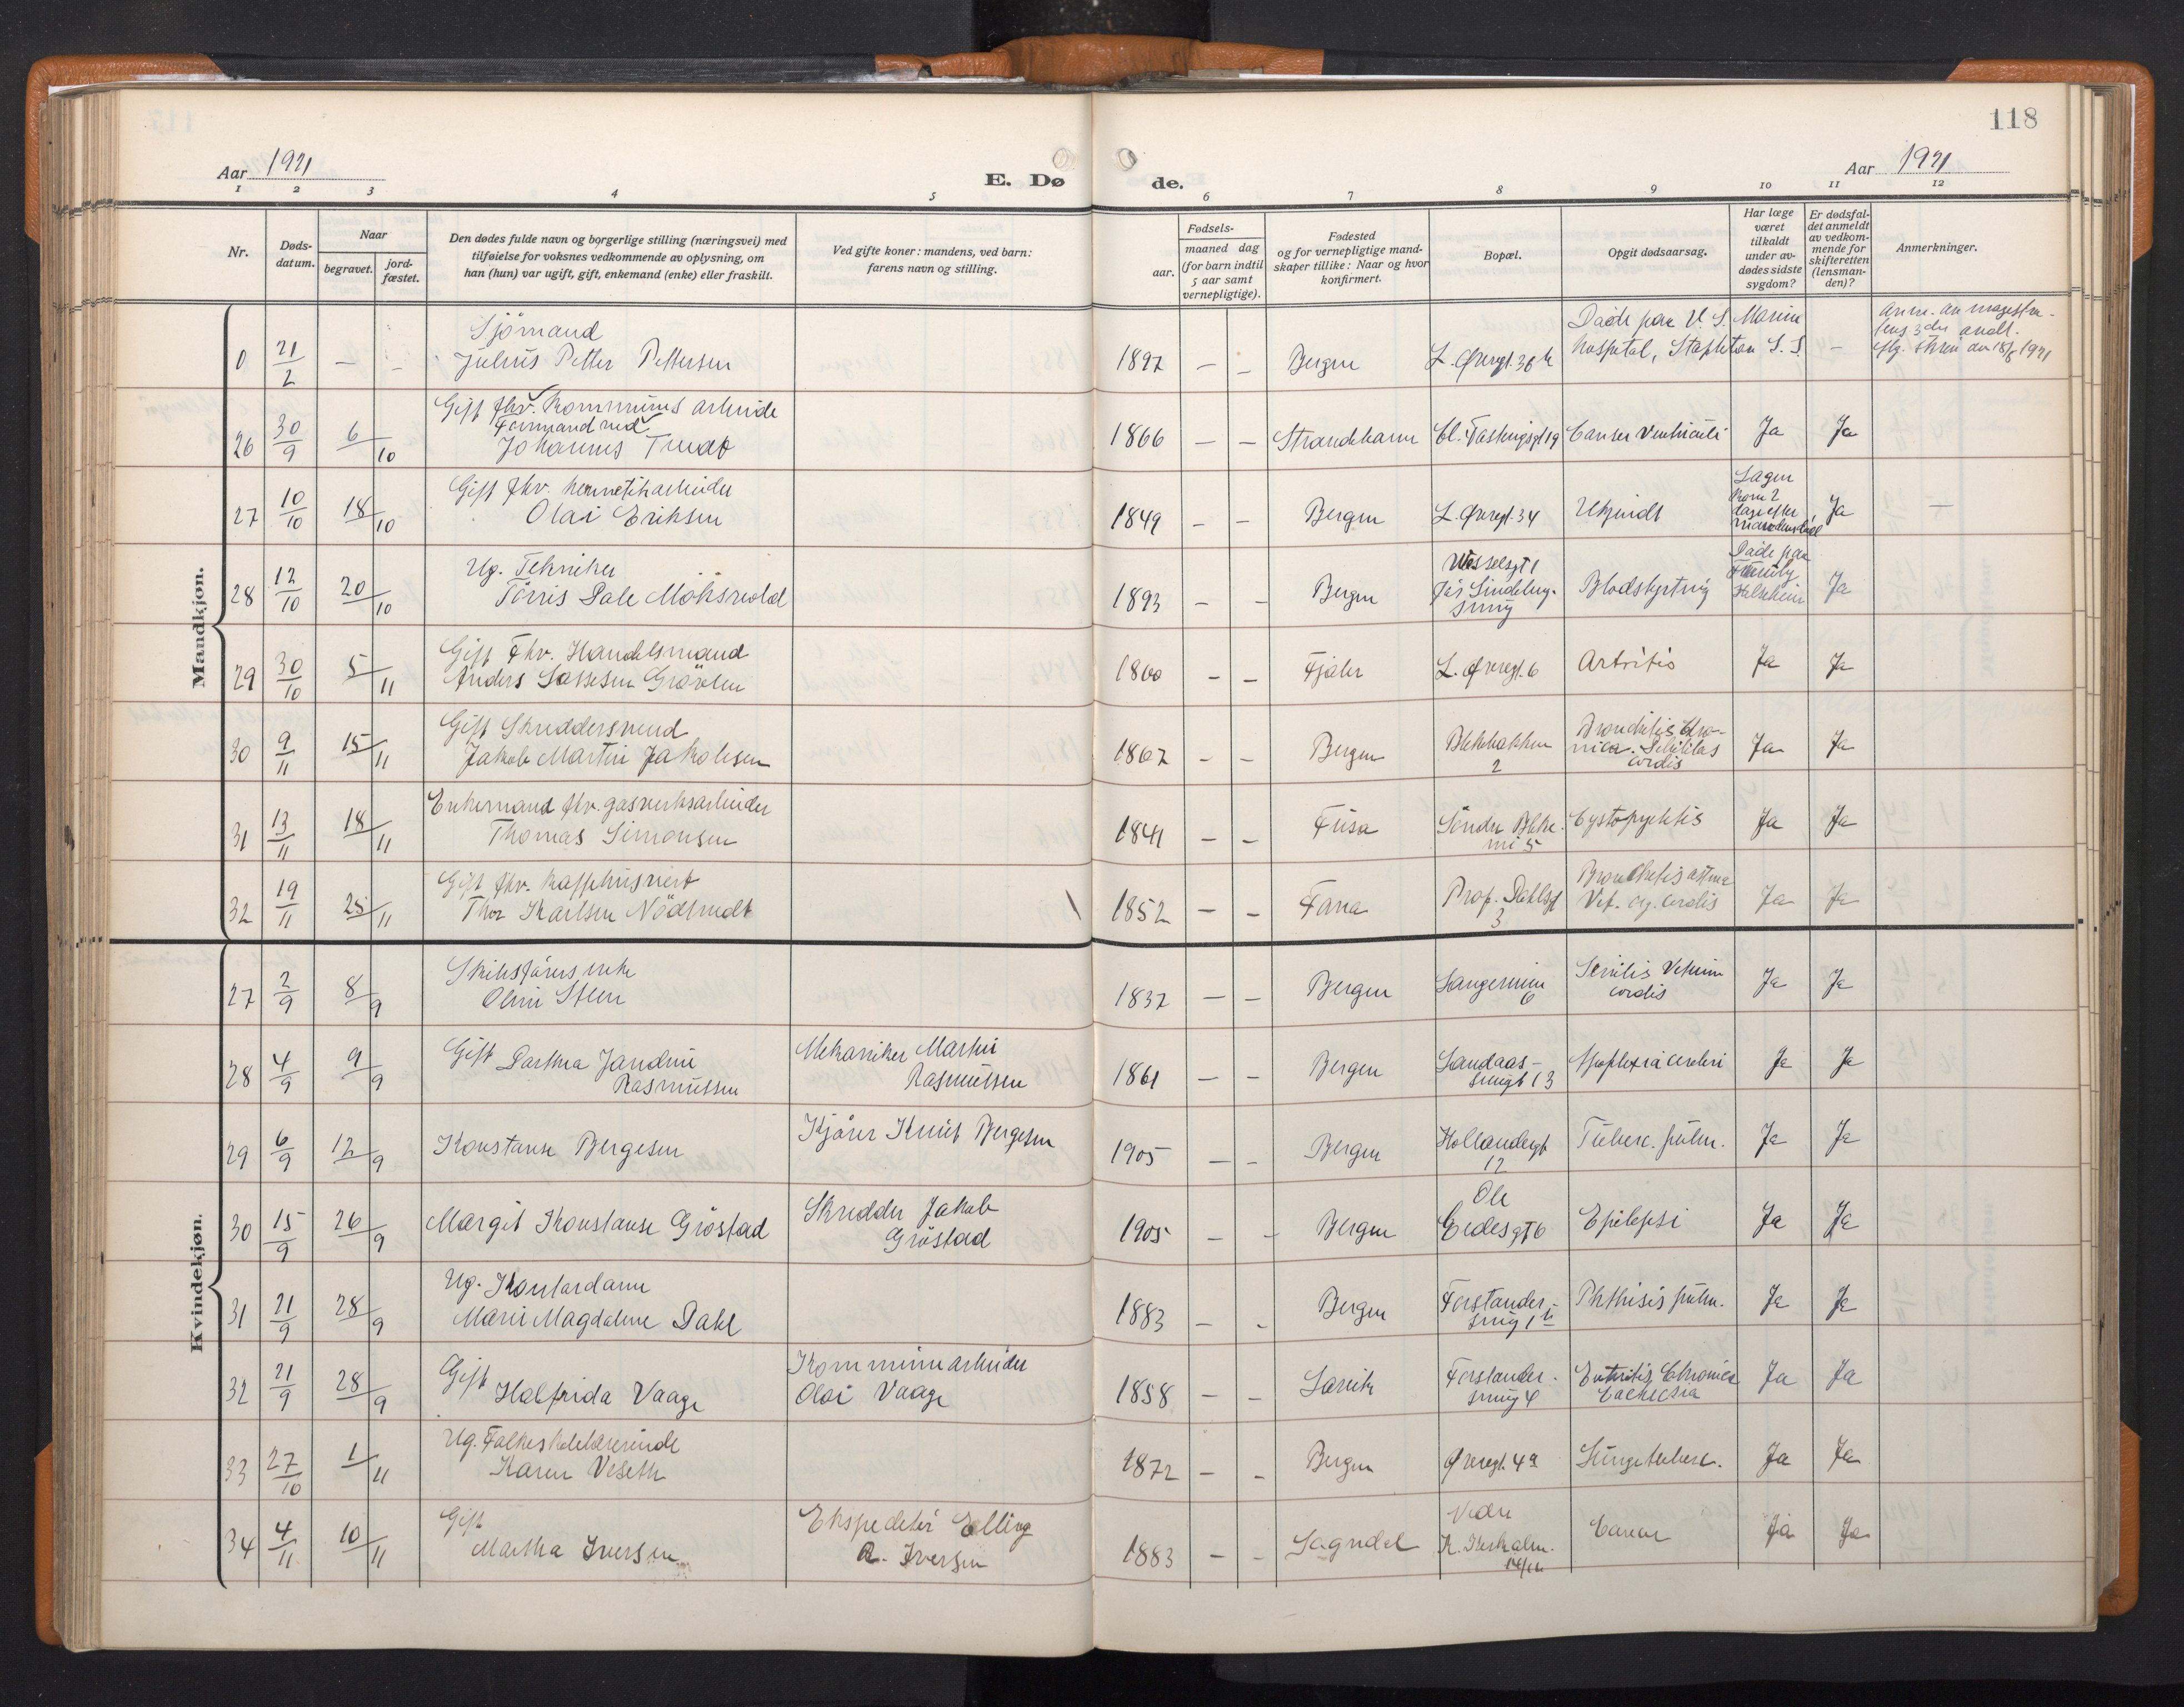 118
Aar 1921
E. Dø
de.
Aar 1921
1 2 3 4 5 6 7 8 9 10 11 12
Nr.
Døds-
datum.
Naar
begravet.
jord-
fæstet.
Den dødes fulde navn og borgerlige stilling (næringsvei) med
tilføielse for voksnes vedkommende av oplysning, om
han (hun) var ugift, gift, enkemand (enke) eller fraskilt.
Ved gifte koner: mandens, ved barn:
farens navn og stilling.
Fødsels-
aar.
maaned dag
(for barn indtil
5 aar samt
vernepligtige).
Fødested
og for vernepligtige mand-
skaper tillike: Naar og hvor
konfirmert.
Bopæl.
Opgit dødsaarsag.
Har læge
været
tilkaldt
under av-
dødes sidste
sygdom?
Er dødsfal-
det anmeldt
av vedkom-
mende for
skifteretten
(lensman-
den)?
Anmerkninger.
Mandkjøn.
0 21/2 — -
Sjömand
Julius Petter Pettersen
1897 — — Bergen L. Øvregt. 36
Døde paa U. S. Marine
hospital, Stapleton
—
3die avdl.
1921
26 30/9 6/10
Gift fhv. Kommunes arbeide
Formand ved
Johannes
1866 — — Strandebarm 19 Cancer Ventriculi Ja Ja
27 10/10 18/10
Gift fhv. hermetikarbeider
Olai Eriksen
1849 — — Bergen L. Øvregt. 34 Ukjendt
Lægen
kom 2
dage efter
Ja —
28 12/10 20/10
Ug. Tekniker
Törris Dale
1893 — — Bergen
Wesselsgt 1
Blodstyrtning
Døde paa
Ja
29 30/10 5/11
Gift Fhv. Handelsmand
Anders Lassesen Grövlen
1860 — — Fjaler L. Øvregt. 6 Artritis Ja Ja
30 9/11 15/11
Gift Skreddersvend
Jakob Martin Jakobsen
1867 — — Bergen
Blekebakken
2
Bronchitis Chro-
nica. Debilitas
cordis
Ja Ja
31 13/11 18/11
Enkemand fhv. gasverksarbeider
Thomas Simonsen
1841 — — Fusa
Söndre Bleke-
vei 5
Cystopyelitis Ja Ja
32 19/11 25/11
Gift fhv. Kaffehusvert
Thor Karlsen Nödtvedt
1852 — — Fana
Prof. Dahlsgt
3
Bronchitis astma
Vit. org. cordis
Ja Ja
Kvindekjøn.
27 2/9 8/9
Skibsförers enke
Oline Steen
1837 — — Bergen
6
Senilis Vitium
cordis
Ja Ja
28 4/9 9/9
Gift Dorthea Jandine
Rasmussen
Mekaniker Martin
Rasmussen
1861 — — Bergen
Landaas-
svingt 13
Apoplexia cerebri Ja Ja
29 6/9 12/9
Konstanse Bergesen
Kjörer Knut Bergesen
1905 — — Bergen
Hollendergt
12
Tuberc. pulm. Ja Ja
30 15/9 26/9
Margit Konstanse Gröstad
Skredder Jakob
Gröstad
1905 — — Bergen
Ole
Irgensgt 6
Epilepsi Ja Ja
31 21/9 28/9
Ug. Kontordame
Marie Magdalene Dahl
1883 — — Bergen
Forstander-
smug 1
Phthisis pulm. Ja Ja
32 21/9 28/9
Gift
Halfrida Vaage
Kommunearbeider
Olai Vaage
1858 — — Larvik
Forstander-
smug 4
Enteritis Chronica
Cachecsia
Ja Ja
33 27/10 1/11
Ug. Folkeskolelærerinde
Karen Veseth
1872 — — Bergen Øvregt. 4a Lungetuberc. Ja Ja
34 4/11 10/11
Gift
Martha Iversen
Ekspeditör Elling
R. Iversen
1883 — — Sogndal
Nedre
Cancer Ja Ja